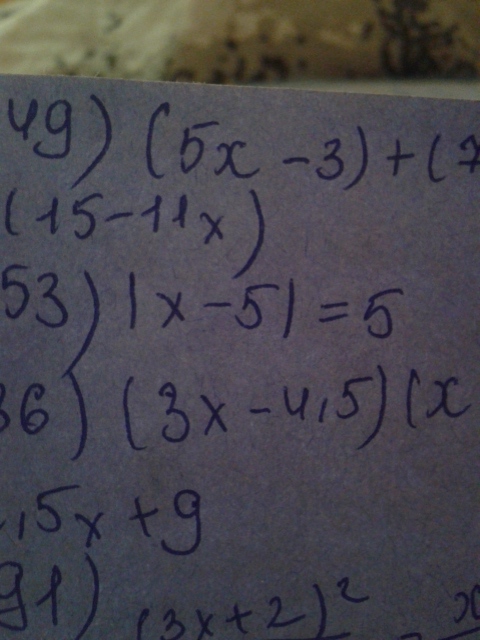 49) (5x - 3) + (7
(15 - 11x)
53) |x - 5| = 5
36) (3x - 4,5)(x
,5x + 9
91) (3x + 2)² = x